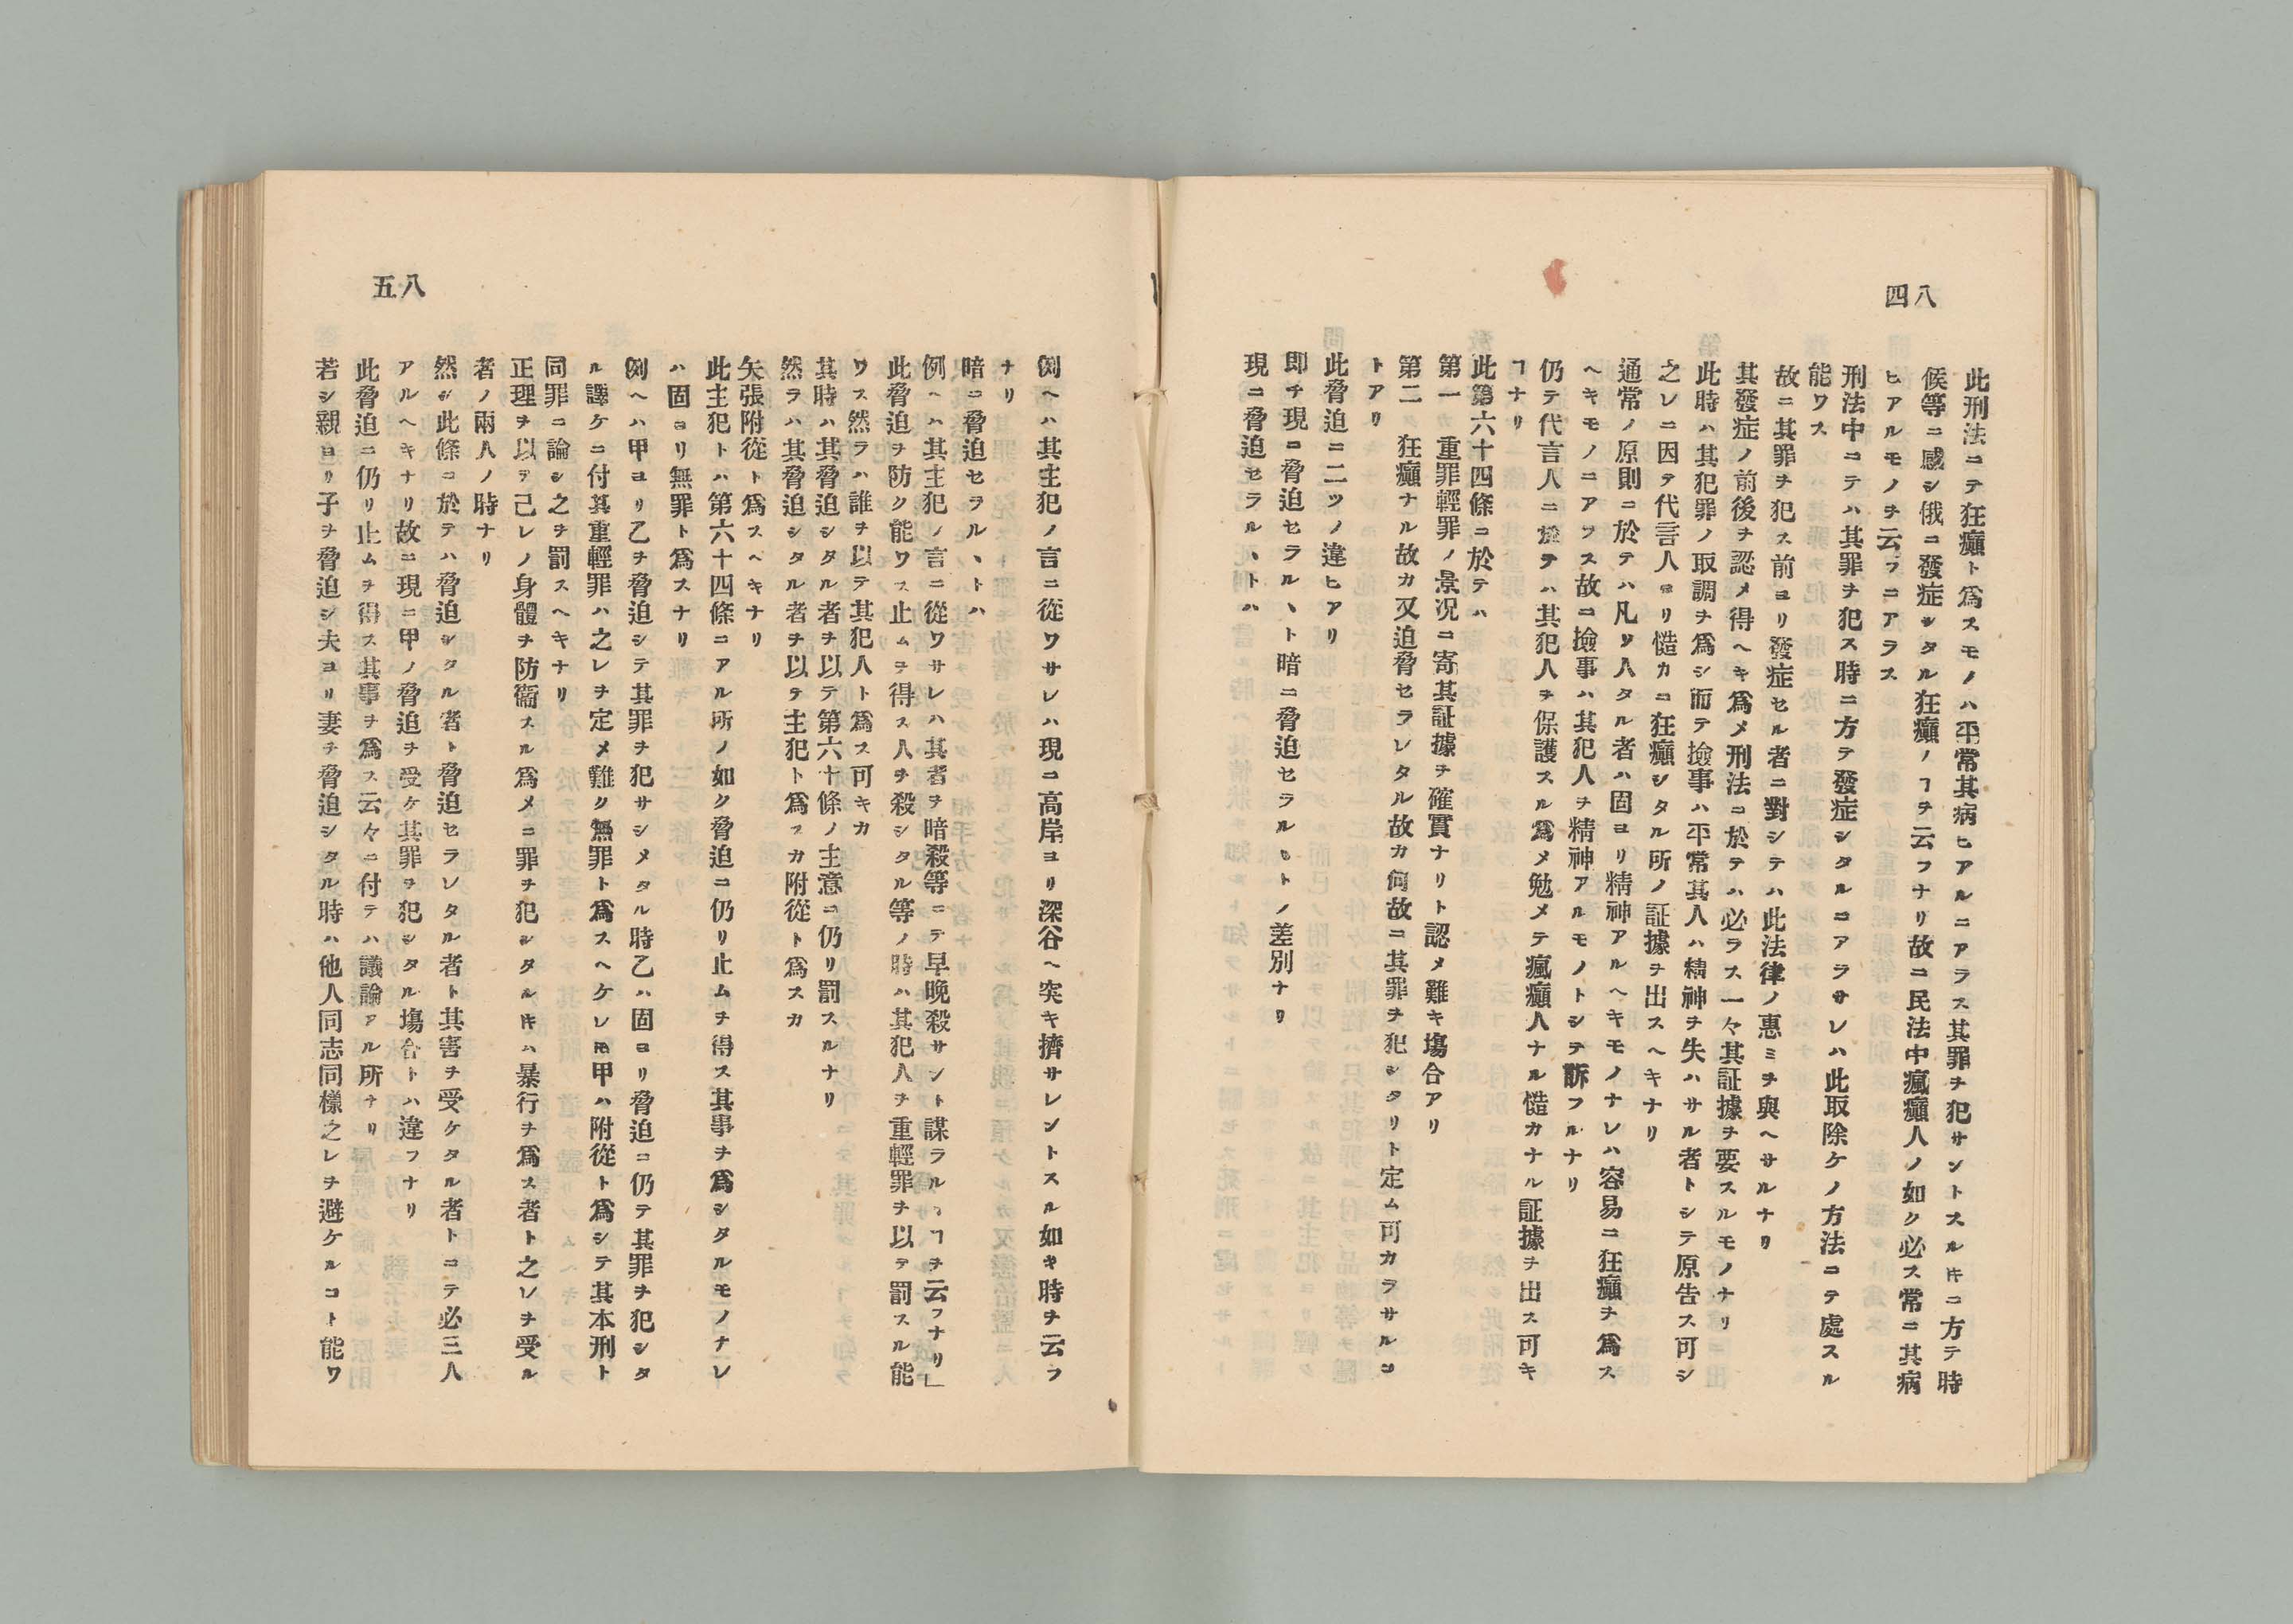 八四
此刑法ニテ狂癲ト爲スモノハ平常其病ヒアルニアラス其罪ヲ犯サントスルトキニ方テ時
候等ニ感シ俄ニ發症シタル狂癲ノヿヲ云フナリ故ニ民法中瘋癲人ノ如ク必ス常ニ其病
ヒアルモノヲ云フニアラス
刑法中ニテハ其罪ヲ犯ス時ニ方テ發症シタルニアラサレハ此取除ケノ方法ニテ處スル
能ワス
故ニ其罪ヲ犯ス前ヨリ發症セル者ニ對シテハ此法律ノ惠ミヲ與ヘサルナリ
其發症ノ前後ヲ認メ得ヘキ爲メ刑法ニ於テハ必ラス一々其証據ヲ要スルモノナリ
此時ハ其犯罪ノ取調ヲ爲シ而テ撿事ハ平常其人ハ精神ヲ失ハサル者トシテ原告ス可シ
之レニ因テ代言人ヨリ慥カニ狂癲シタル所ノ証據ヲ出スヘキナリ
通常ノ原則ニ於テハ凡ソ人タル者ハ固ヨリ精神アルヘキモノナレハ容易ニ狂癲ヲ爲ス
ヘキモノニアラス故ニ撿事ハ其犯人ヲ精神アルモノトシテ訴フルナリ
仍テ代言人ニ於テハ其犯人ヲ保護スル爲メ勉メテ瘋癲人ナル慥カナル証據ヲ出ス可キ
ヿナリ
此第六十四條ニ於テハ
第一　重罪輕罪ノ景況ニ寄其証據ヲ確實ナリト認メ難キ塲合アリ
第二　狂癲ナル故カ又迫脅セラレタル故カ何故ニ其罪ヲ犯シタリト定ム可カラサルコ
トアリ
此脅迫ニ二ツノ違ヒアリ
即チ現ニ脅迫セラルヽト暗ニ脅迫セラルヽトノ差別ナリ
現ニ脅迫セラルヽトハ
八五
例ヘハ其主犯ノ言ニ從ワサレハ現ニ高岸ヨリ深谷ヘ突キ擠サレントスル如キ時ヲ云フ
ナリ
暗ニ脅迫セラルヽトハ
例ヘハ其主犯ノ言ニ從ワサレハ其者ヲ暗殺等ニテ早晩殺サント謀ラルヽヿヲ云フナリ」
此脅迫ヲ防ク能ワス止ムヲ得ス人ヲ殺シタル等ノ時ハ其犯人ヲ重輕罪ヲ以テ罰スル能
ワス然ラハ誰ヲ以テ其犯人ト爲ス可キカ
其時ハ其脅迫シタル者ヲ以テ第六十條ノ主意ニ仍リ罰スルナリ
然ラハ其脅迫シタル者ヲ以テ主犯ト爲スカ附從ト爲スカ
矢張附從ト爲スヘキナリ
此主犯トハ第六十四條ニアル所ノ如ク脅迫ニ仍リ止ムヲ得ス其事ヲ爲シタルモノナレ
ハ固ヨリ無罪ト爲スナリ
例ヘハ甲ヨリ乙ヲ脅迫シテ其罪ヲ犯サシメタル時乙ハ固ヨリ脅迫ニ仍テ其罪ヲ犯シタ
ル譯ケニ付其重輕罪ハ之レヲ定メ難ク無罪ト爲スヘケレ𪜈甲ハ附從ト爲シテ其本刑ト
同罪ニ論シ之ヲ罰スヘキナリ
正理ヲ以テ己レノ身體ヲ防衞スル爲メニ罪ヲ犯シタルトキハ暴行ヲ爲ス者ト之レヲ受ル
者ノ兩人ノ時ナリ
然シ此條ニ於テハ脅迫シタル者ト脅迫セラレタル者ト其害ヲ受ケタル者トニテ必三人
アルヘキナリ故ニ現ニ甲ノ脅迫ヲ受ケ其罪ヲ犯シタル塲合トハ違フナリ
此脅迫ニ仍リ止ムヲ得ス其事ヲ爲ス云々ニ付テハ議論アル所ナリ
若シ親ヨリ子ヲ脅迫シ夫ヨリ妻ヲ脅迫シタル時ハ他人同志同樣之レヲ避ケルコト能ワ